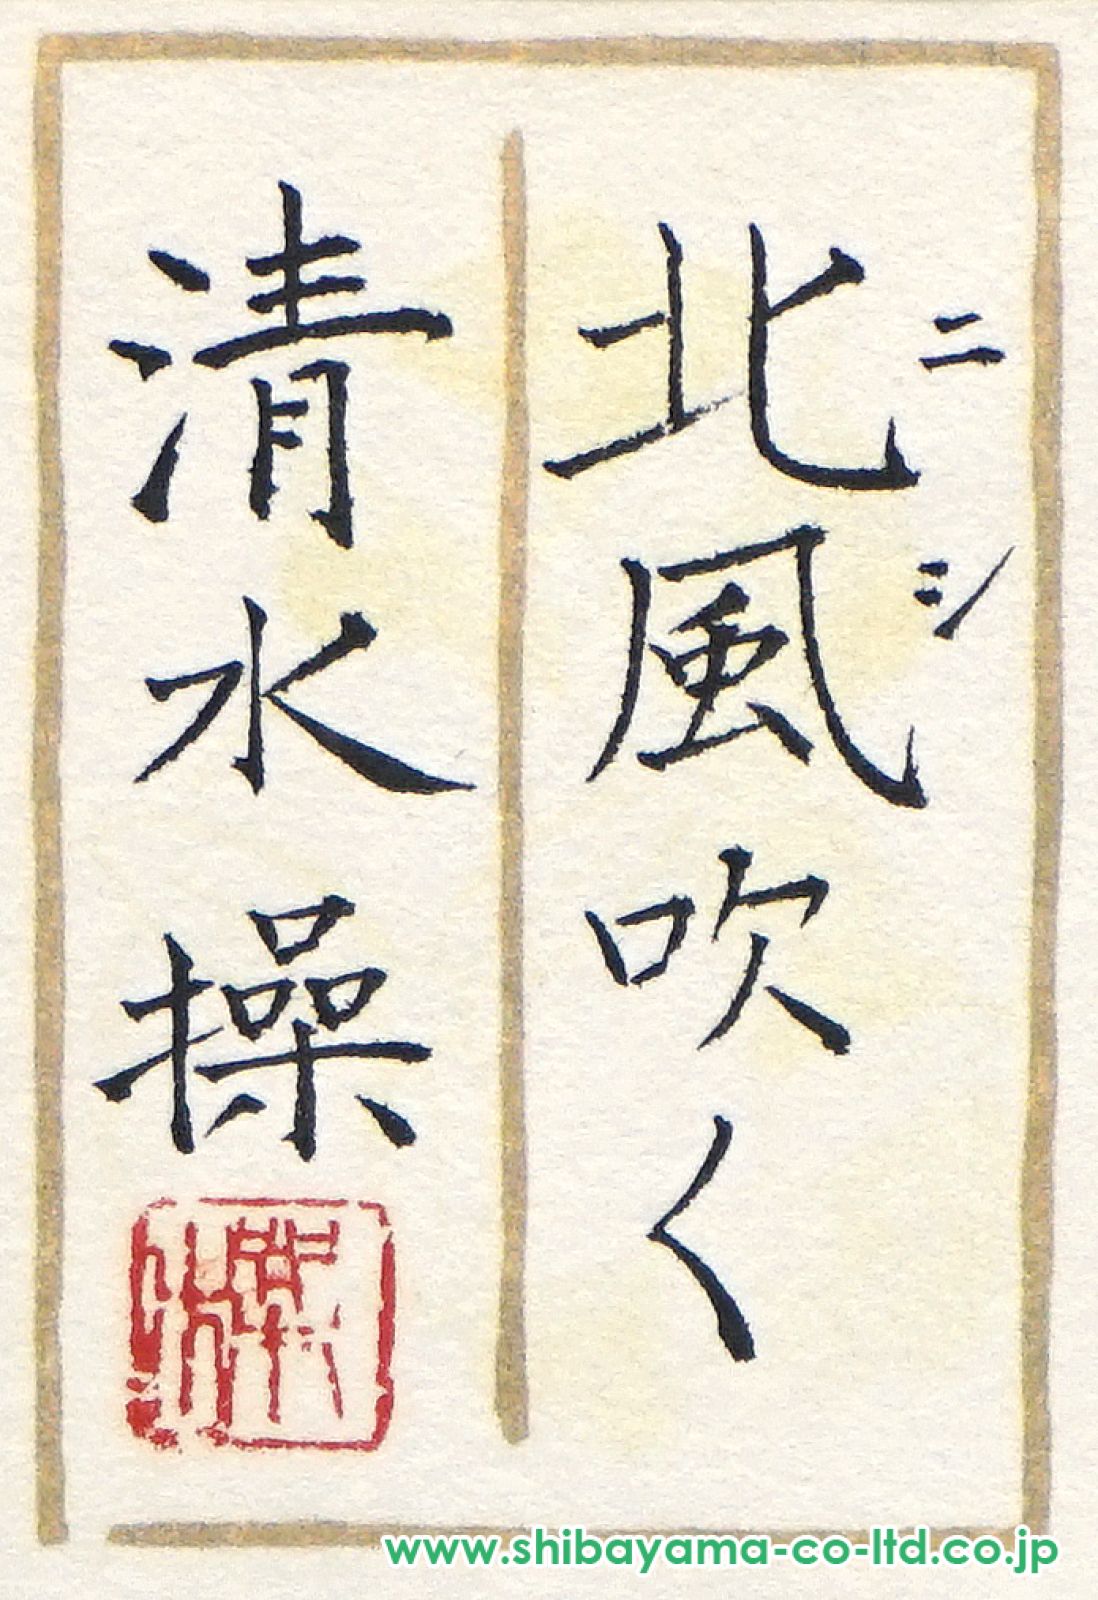 北風吹く
ニシ
清水操
操
www.shibayama-co-ltd.co.jp